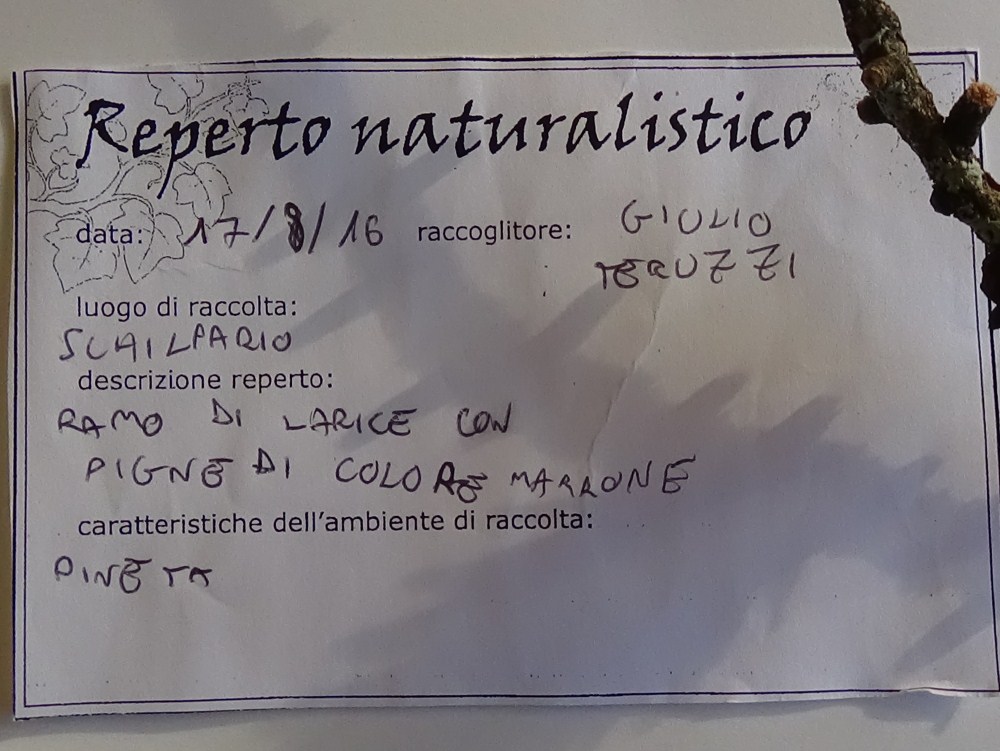 Reperto naturalistico
data: 17/8/16 raccoglitore: GIULIO
TERUZZI
luogo di raccolta:
SCHILPARIO
descrizione reperto:
RAMO DI LARICE CON
PIGNE DI COLORE MARRONE
caratteristiche dell'ambiente di raccolta:
PINETA